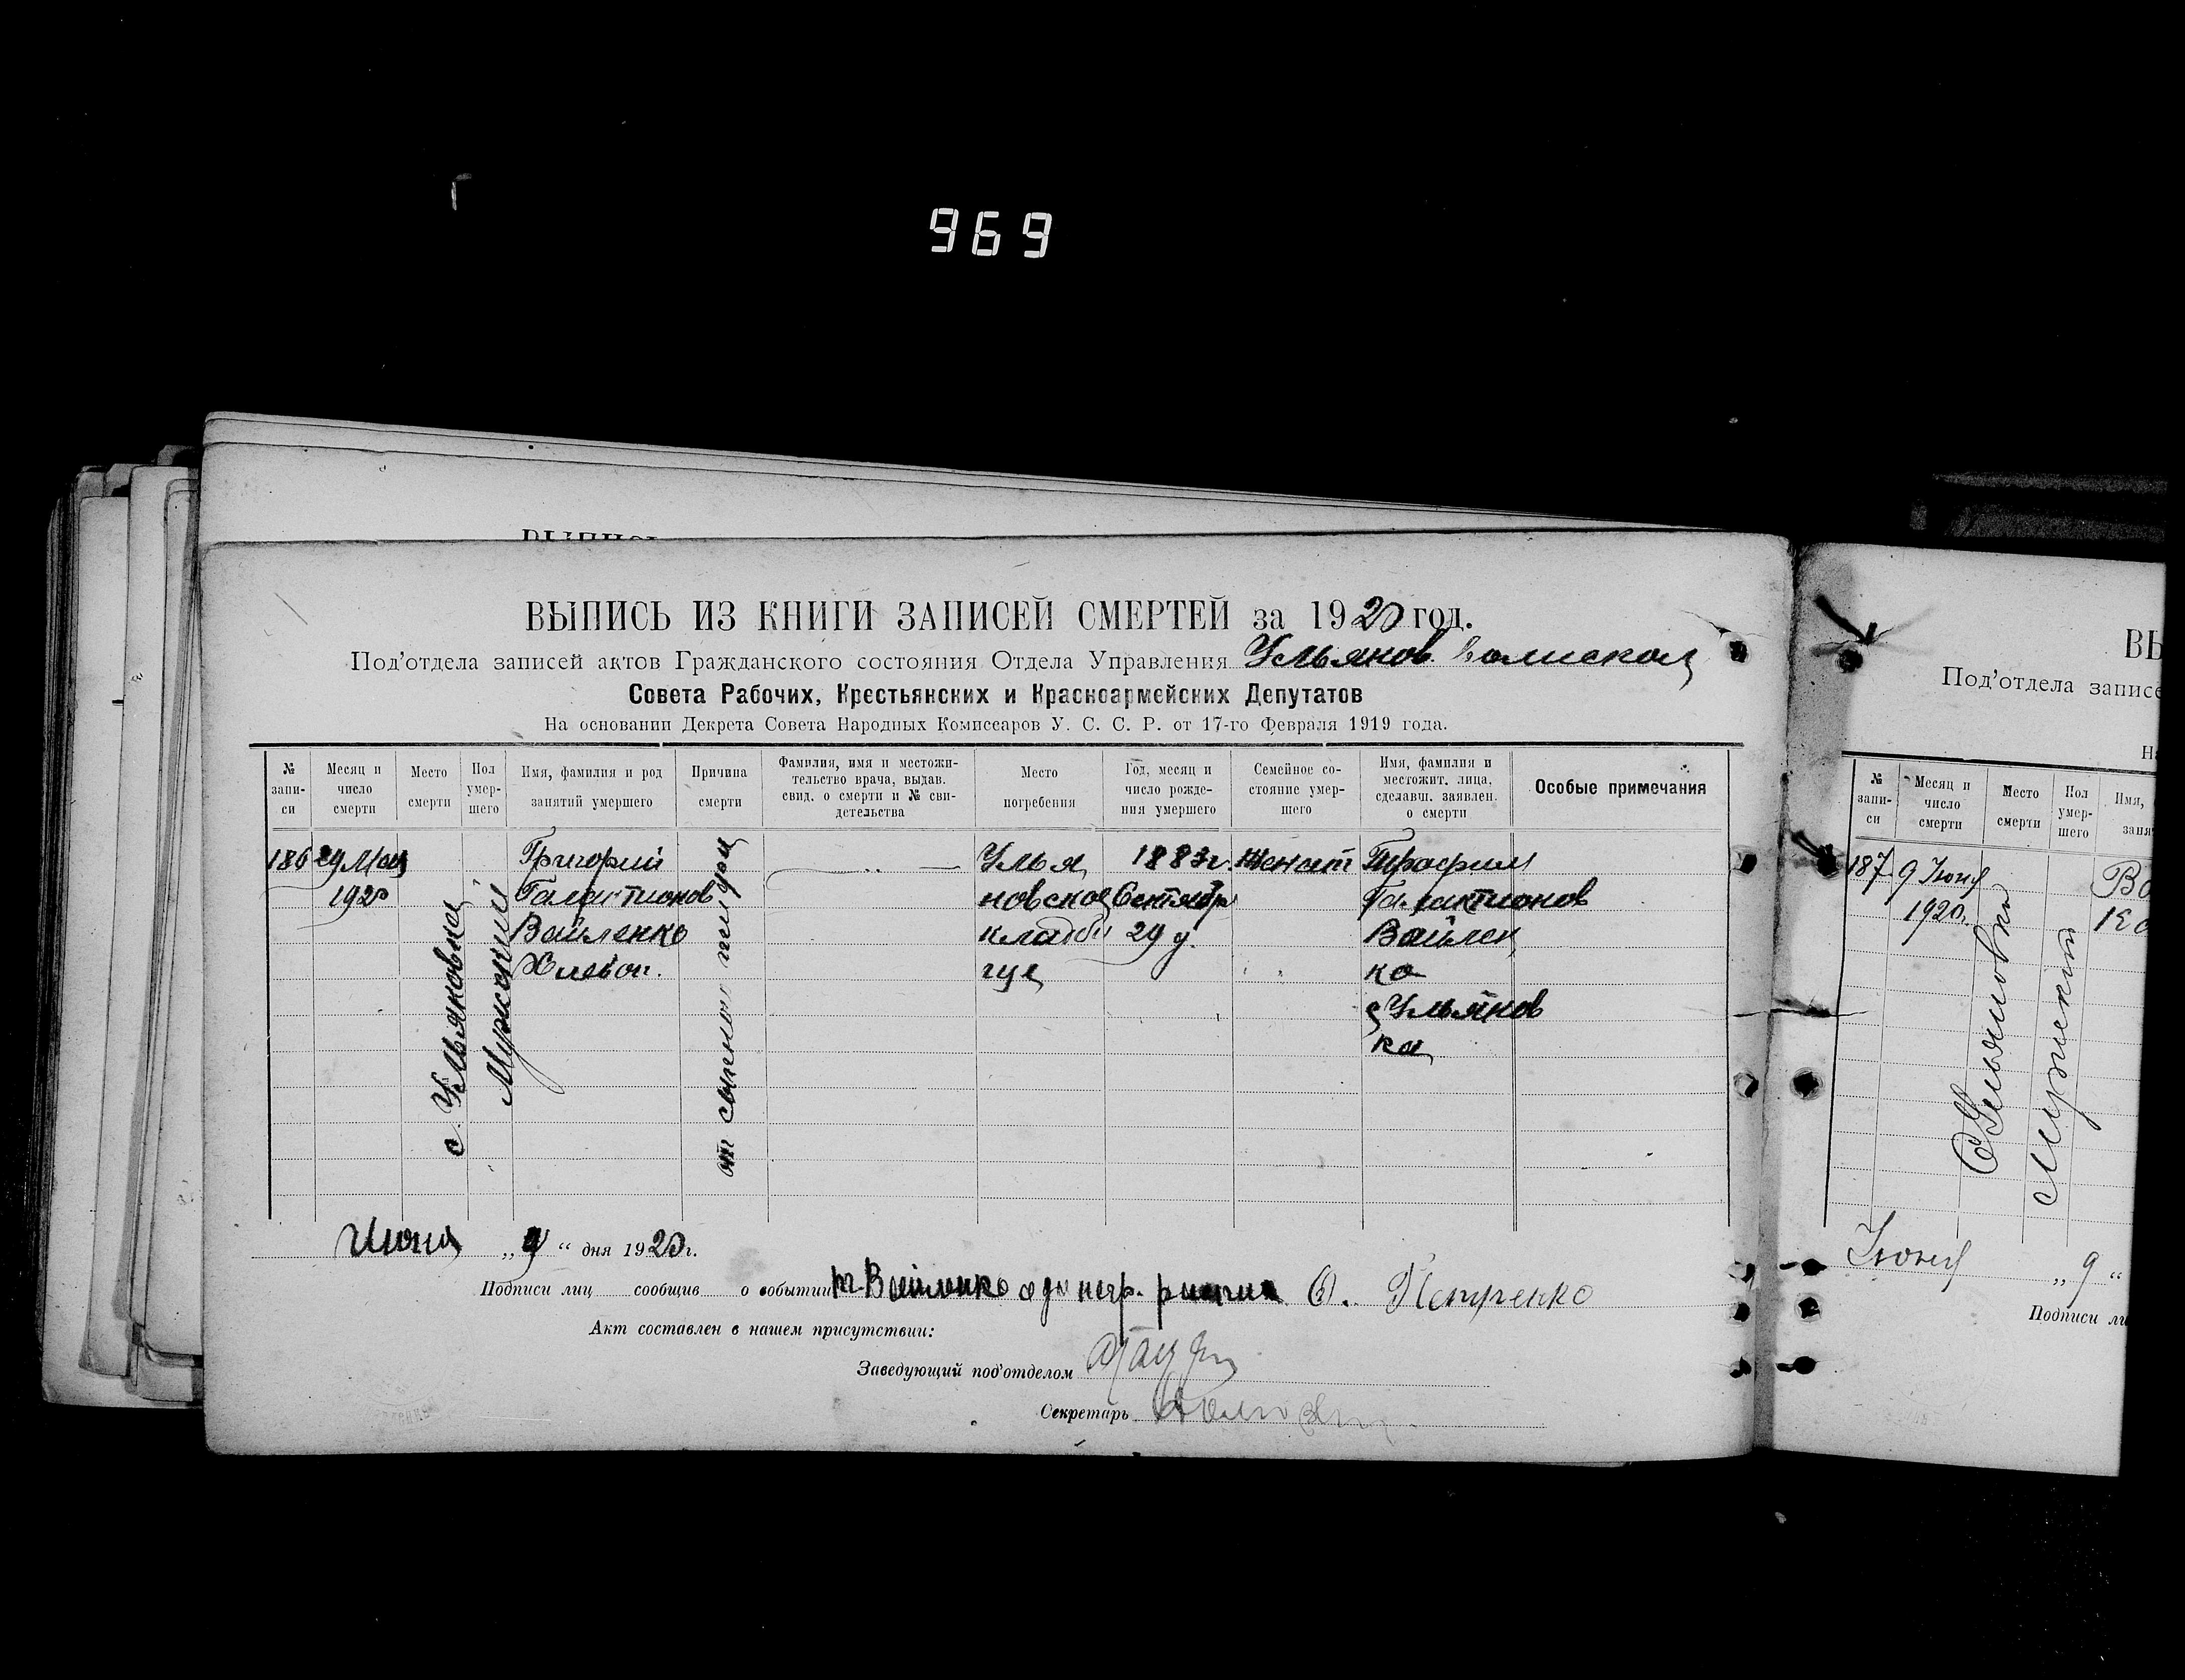 969
ВЫПИСЬ ИЗ КНИГИ ЗАПИСЕЙ СМЕРТЕЙ за 1920 год.
Под'отдела записей актов Гражданского состояния Отдела Управления Ульянов.
Совета Рабочих, Крестьянских и Красноармейских Депутатов
На основании Декрета Совета Народных Комиссаров У. С. С. Р. от 17-го Февраля 1919 года.
№ запи-си
Месяц и число смерти
Место смерти
Пол умер-шего
Имя, фамилия и род занятий умершего
Причина смерти
Фамилия, имя и местожи-тельство врача, выдав. свид. о смерти и № сви-детельства
Место погребения
Год, месяц и число рожде-ния умершего
Семейное со-стояние умер-шего
Имя, фамилия и местожит. лица, сделавш. заявлен. о смерти
Особые примечания
186
29 Мая
1920
с. Ульяновка
Мужской
Григорий
Галактионов
Вайленко
Хлебоп.
от сыпного тифа
Улья
новское
кладби
ще
1883г.
Сентябр
29 д.
Женат
Трофим
Галактионов
Вайлен
ко
с Ульянов
ка
Июня „ 9 “ дня 1920 г.
Подписи лиц сообщив о событии Вайленко О. Петренко
Акт составлен в нашем присутствии:
Заведующий под'отделом
Секретарь
ВЫ
Под'отдела записе
На
№ запи-си
Месяц и число смерти
Место смерти
Пол умер-шего
Имя,
заня
187
9 Июня
1920.
с Ульяновка
Мужской
Июня „ 9 “
Подписи ли